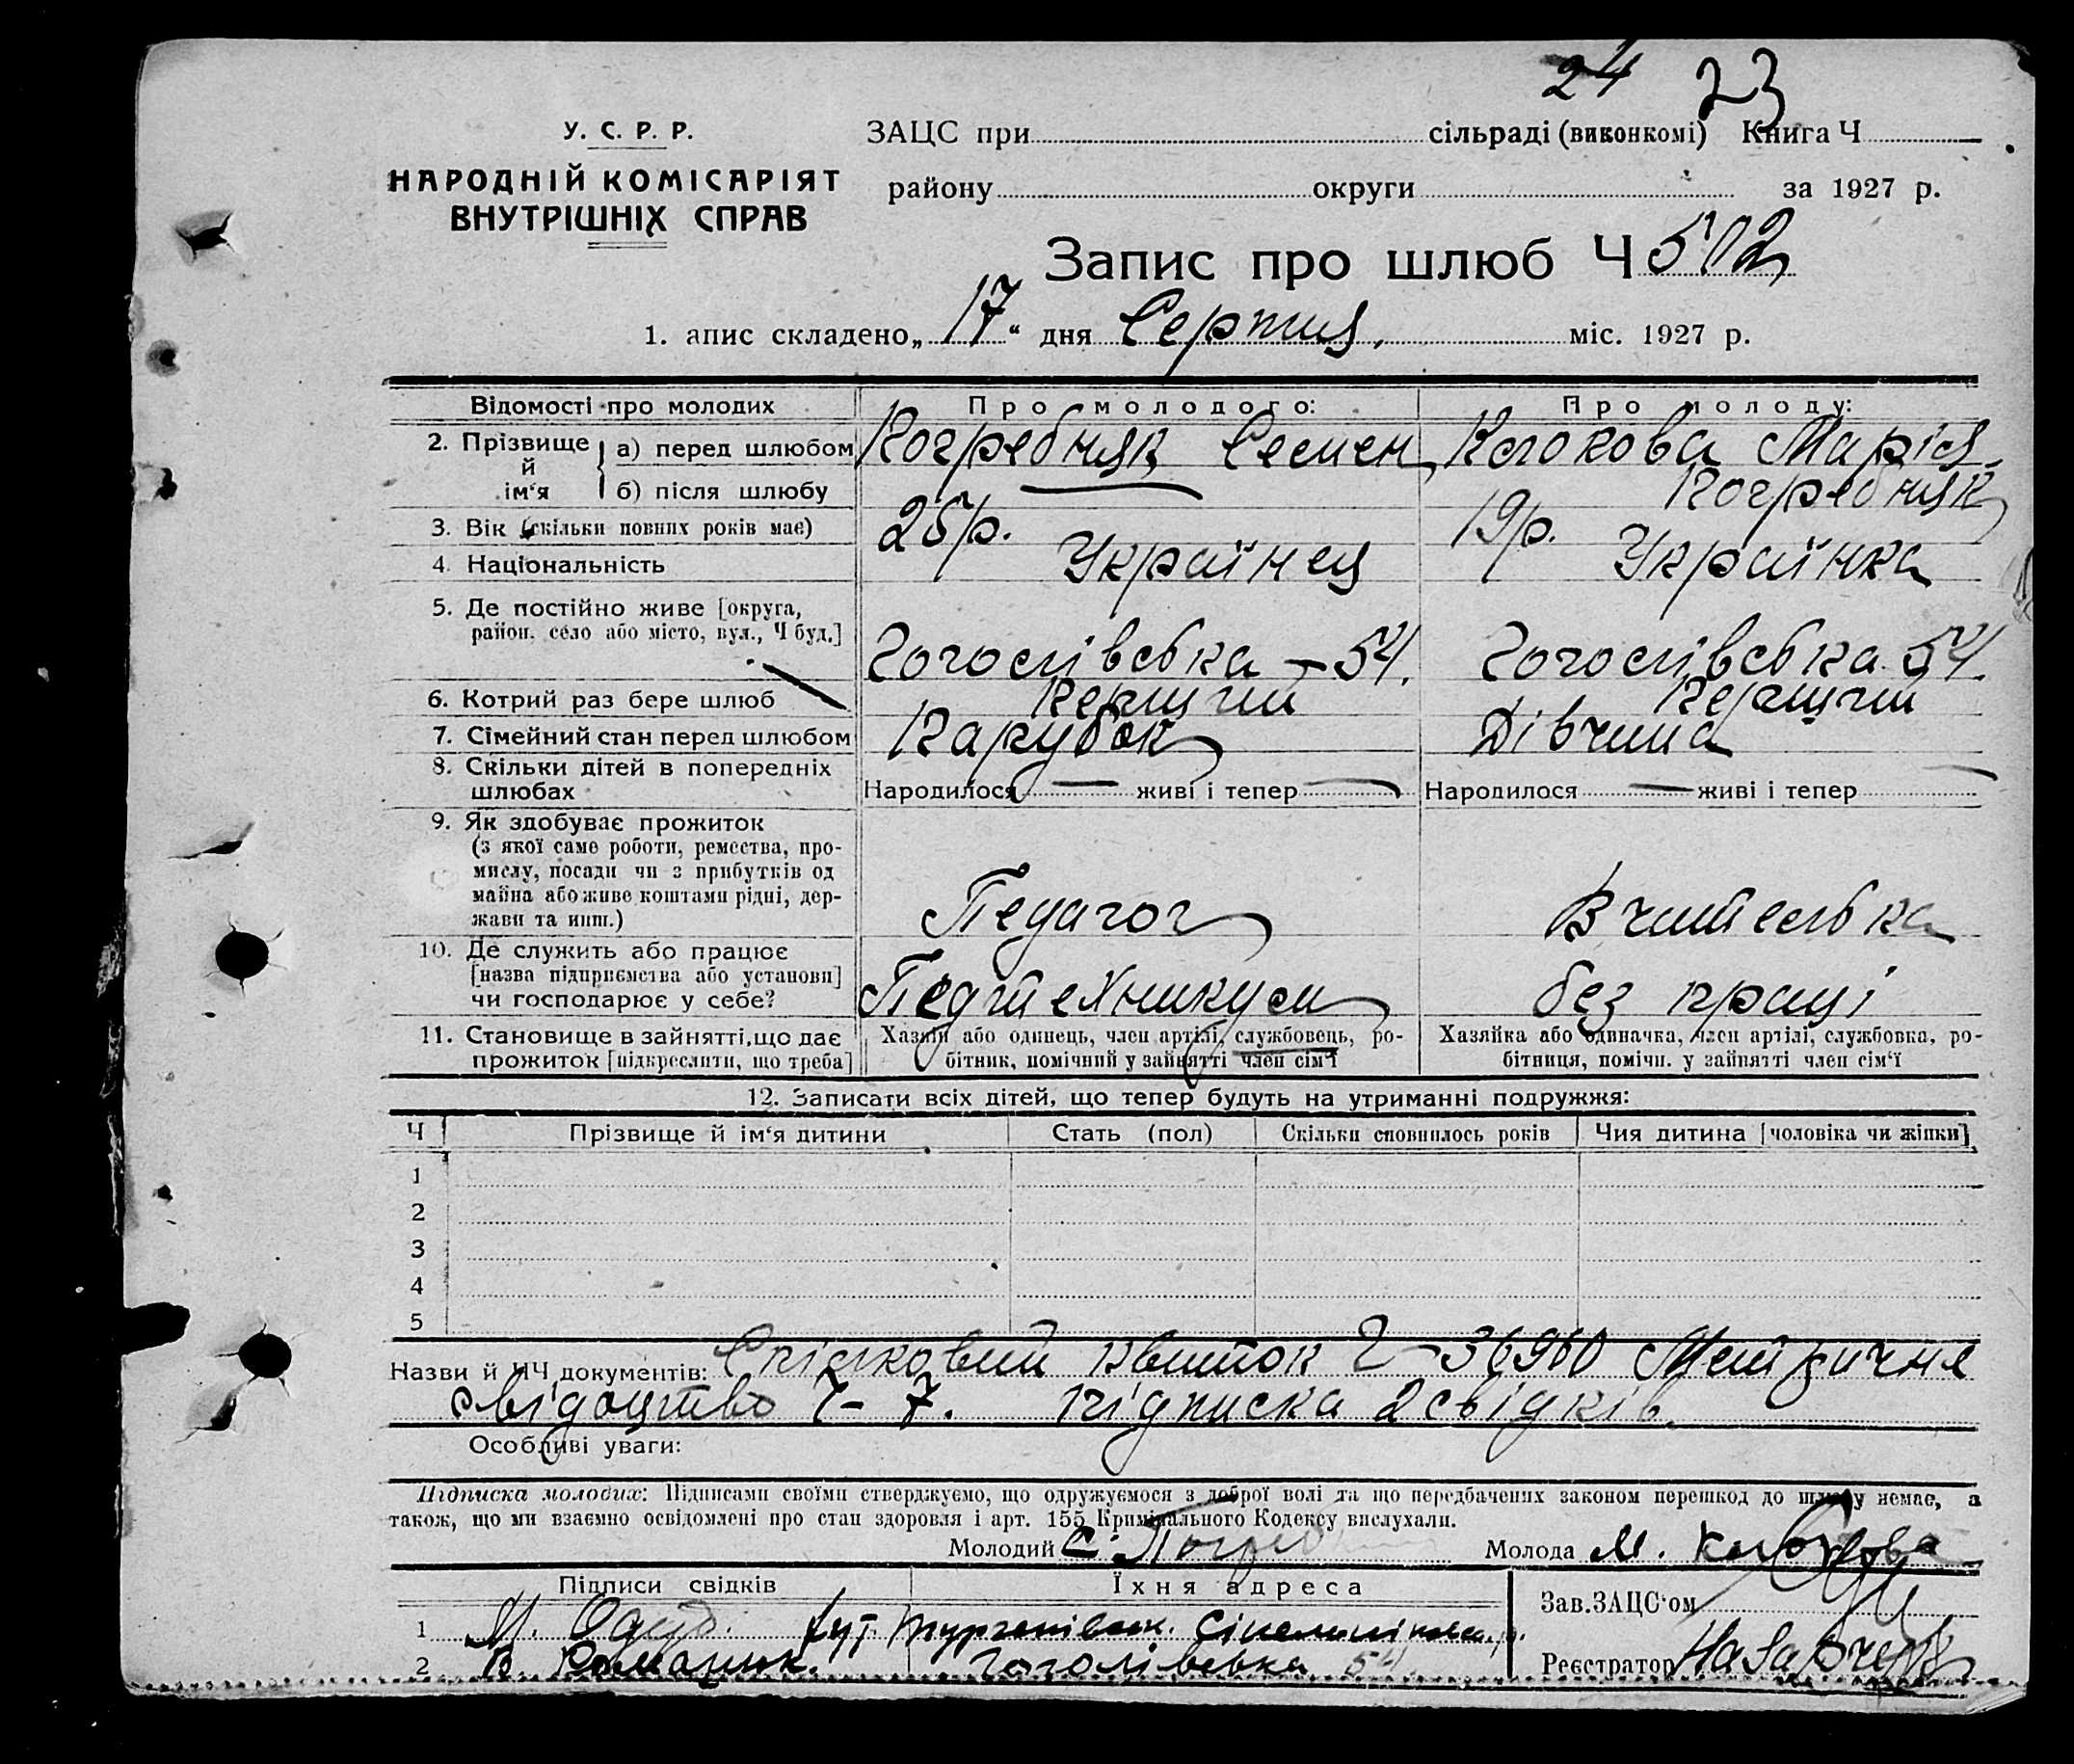 24 23
У. С. Р. Р.
НАРОДНІЙ КОМІСАРІЯТ
ВНУТРІШНІХ СПРАВ
ЗАЦС при сільраді (виконкомі) Книга Ч
району округи за 1927 р.
Запис про шлюб Ч 502
1. апис складено „17“ дня Серпня, міс. 1927 р.
Відомості про молодих Про молодого: Про молоду:
2. Прізвище й ім‘я а) перед шлюбом Погребняк Семен Клокова Марія
б) після шлюбу Погребняк
3. Вік (скільки повних років має) 25р. 19р.
4. Національність Українец Українка
5. Де постійно живе [округа,
район, село або місто, вул., Ч буд.] Гоголівська – 54. Гоголівська 54.
6. Котрий раз бере шлюб Перший Перший
7. Сімейний стан перед шлюбом Парубок Дівчина
8. Скільки дітей в попередніх
шлюбах Народилося — живі і тепер — Народилося — живі і тепер —
9. Як здобуває прожиток
(з якої саме роботи, ремества, про-
мислу, посади чи з прибутків од
майна або живе коштами рідні, дер-
жави та инш.) Педагог Вчителька
10. Де служить або працює
[назва підприємства або установи]
чи господарює у себе? Педтехникум без праці
11. Становище в зайнятті, що дає
прожиток [підкреслити, що треба]
Хазяїн або одинець, член артілі, службовець, ро-
бітник, помічний у зайнятті член сім‘ї
Хазяйка або одиначка, член артілі, службовка, ро-
бітниця, помічн. у зайнятті член сім‘ї
12. Записати всіх дітей, що тепер будуть на утриманні подружжя:
Ч Прізвище й ім‘я дитини Стать (пол) Скільки сповнилось років Чия дитина [чоловіка чи жінки]
1
2
3
4
5
Назви й ЧЧ документів: Спілковий квиток Ч – 36960 Метрична
свідоцтво Ч – 7. підписка 2 свідків.
Особливі уваги:
Підписка молодих: Підписами своїми стверджуємо, що одружуємося з доброї волі та що передбачених законом перешкод до шлюбу немає, а
також, що ми взаємно освідомлені про стан здоровля і арт. 155 Кримінального Кодексу вислухали.
Молодий С. Погреб Молода М. Клокова
Підписи свідків Їхня адреса
Зав.ЗАЦС‘ом
1 М.
2 В. Романюк. Гоголівська 54
Реєстратор Назарчук